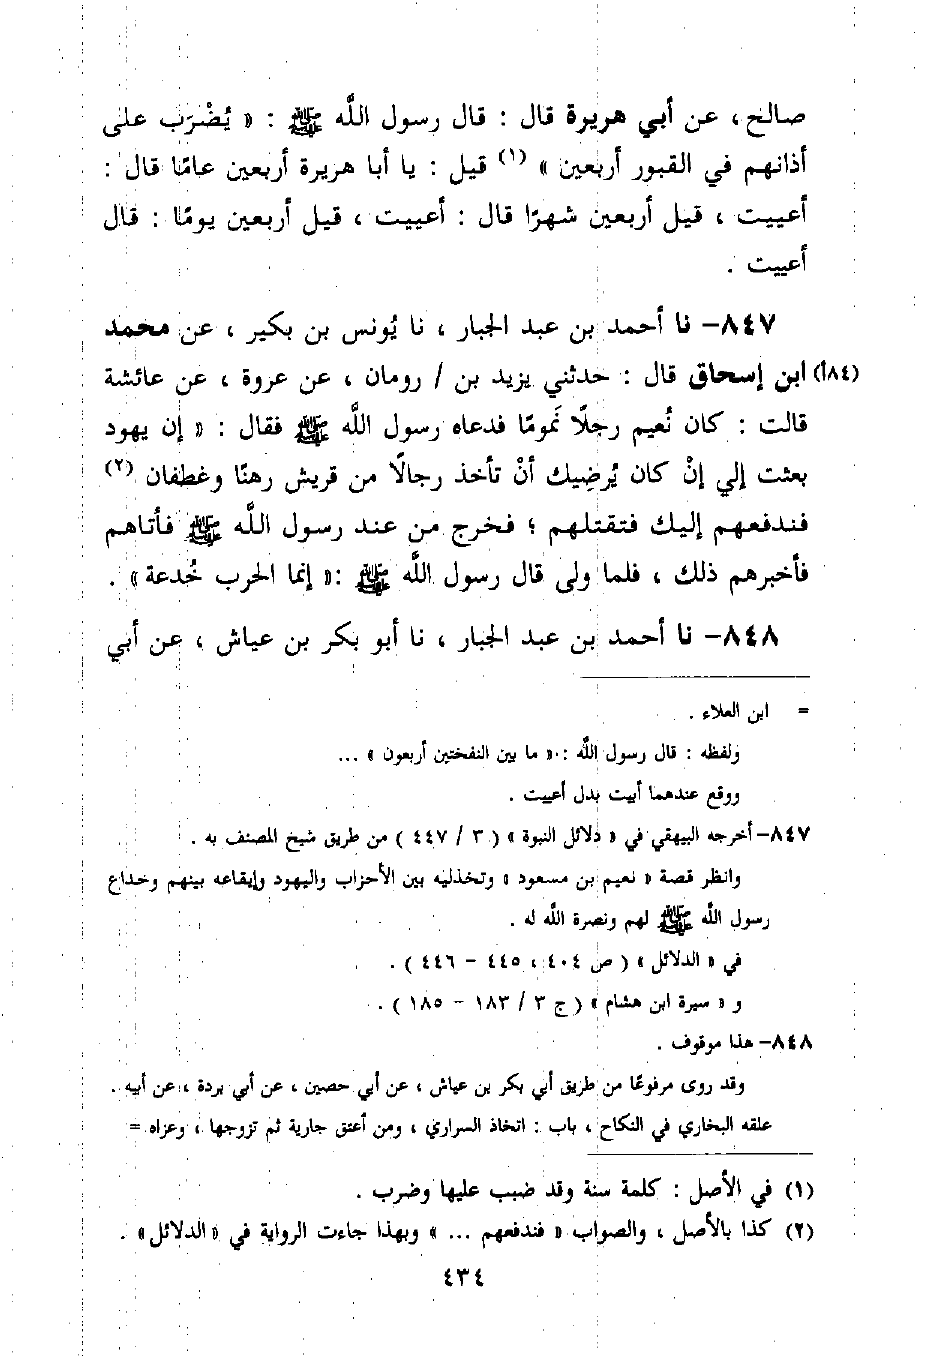 صالح، عن أبي هريرة قال : قال رسول اللَّه ﷺ : « يُضْرَب على
أذانهم في القبور أربعين » (١) قيل : يا أبا هريرة أربعين عامًا قال :
أعييت ، قيل أربعين شهرًا قال : أعييت ، قيل أربعين يومًا : قال
أعييت .
٨٤٧- نا أحمد بن عبد الجبار ، نا يُونس بن بكير ، عن محمد
(١٨٤أ) ابن إسحاق قال : حدثني يزيد بن / رومان ، عن عروة ، عن عائشة
قالت : كان نُعيم رجلًا نَمومًا فدعاه رسول اللَّه ﷺ فقال : « إن يهود
بعثت إلي إنْ كان يُرضِيك أنْ تأخذ رجالًا من قريش رهنًا وغطفان (٢)
فندفعهم إليك فتقتلهم ؛ فخرج من عند رسول اللَّه ﷺ فأتاهم
فأخبرهم ذلك ، فلما ولى قال رسول اللَّه ﷺ :« إنما الحرب خُدعة » .
٨٤٨- نا أحمد بن عبد الجبار ، نا أبو بكر بن عياش ، عن أبي
= ابن العلاء .
ولفظه : قال رسول اللَّه :« ما بين النفختين أربعون » ...
ووقع عندهما أبيت بدل أعييت .
٨٤٧- أخرجه البيهقي في « دلائل النبوة » ( ٣ / ٤٤٧ ) من طريق شيخ المصنف به .
وانظر قصة « نعيم بن مسعود » وتخذليه بين الأحزاب واليهود وإيقاعه بينهم وخداع
رسول اللَّه ﷺ لهم ونصرة اللَّه له .
في « الدلائل » ( ص ٤٠٤ ، ٤٤٥ - ٤٤٦ ) .
و « سيرة ابن هشام » ( ج ٣ / ١٨٣ - ١٨٥ ) .
٨٤٨- هذا موقوف .
وقد روى مرفوعًا من طريق أبي بكر بن عياش ، عن أبي حصين ، عن أبي بردة ، عن أبيه .
علقه البخاري في النكاح ، باب : اتخاذ السراري ، ومن أعتق جارية ثم تزوجها ، وعزاه =
(١) في الأصل : كلمة سنة وقد ضبب عليها وضرب .
(٢) كذا بالأصل ، والصواب « فندفعهم ... » وبهذا جاءت الرواية في « الدلائل » .
٤٣٤